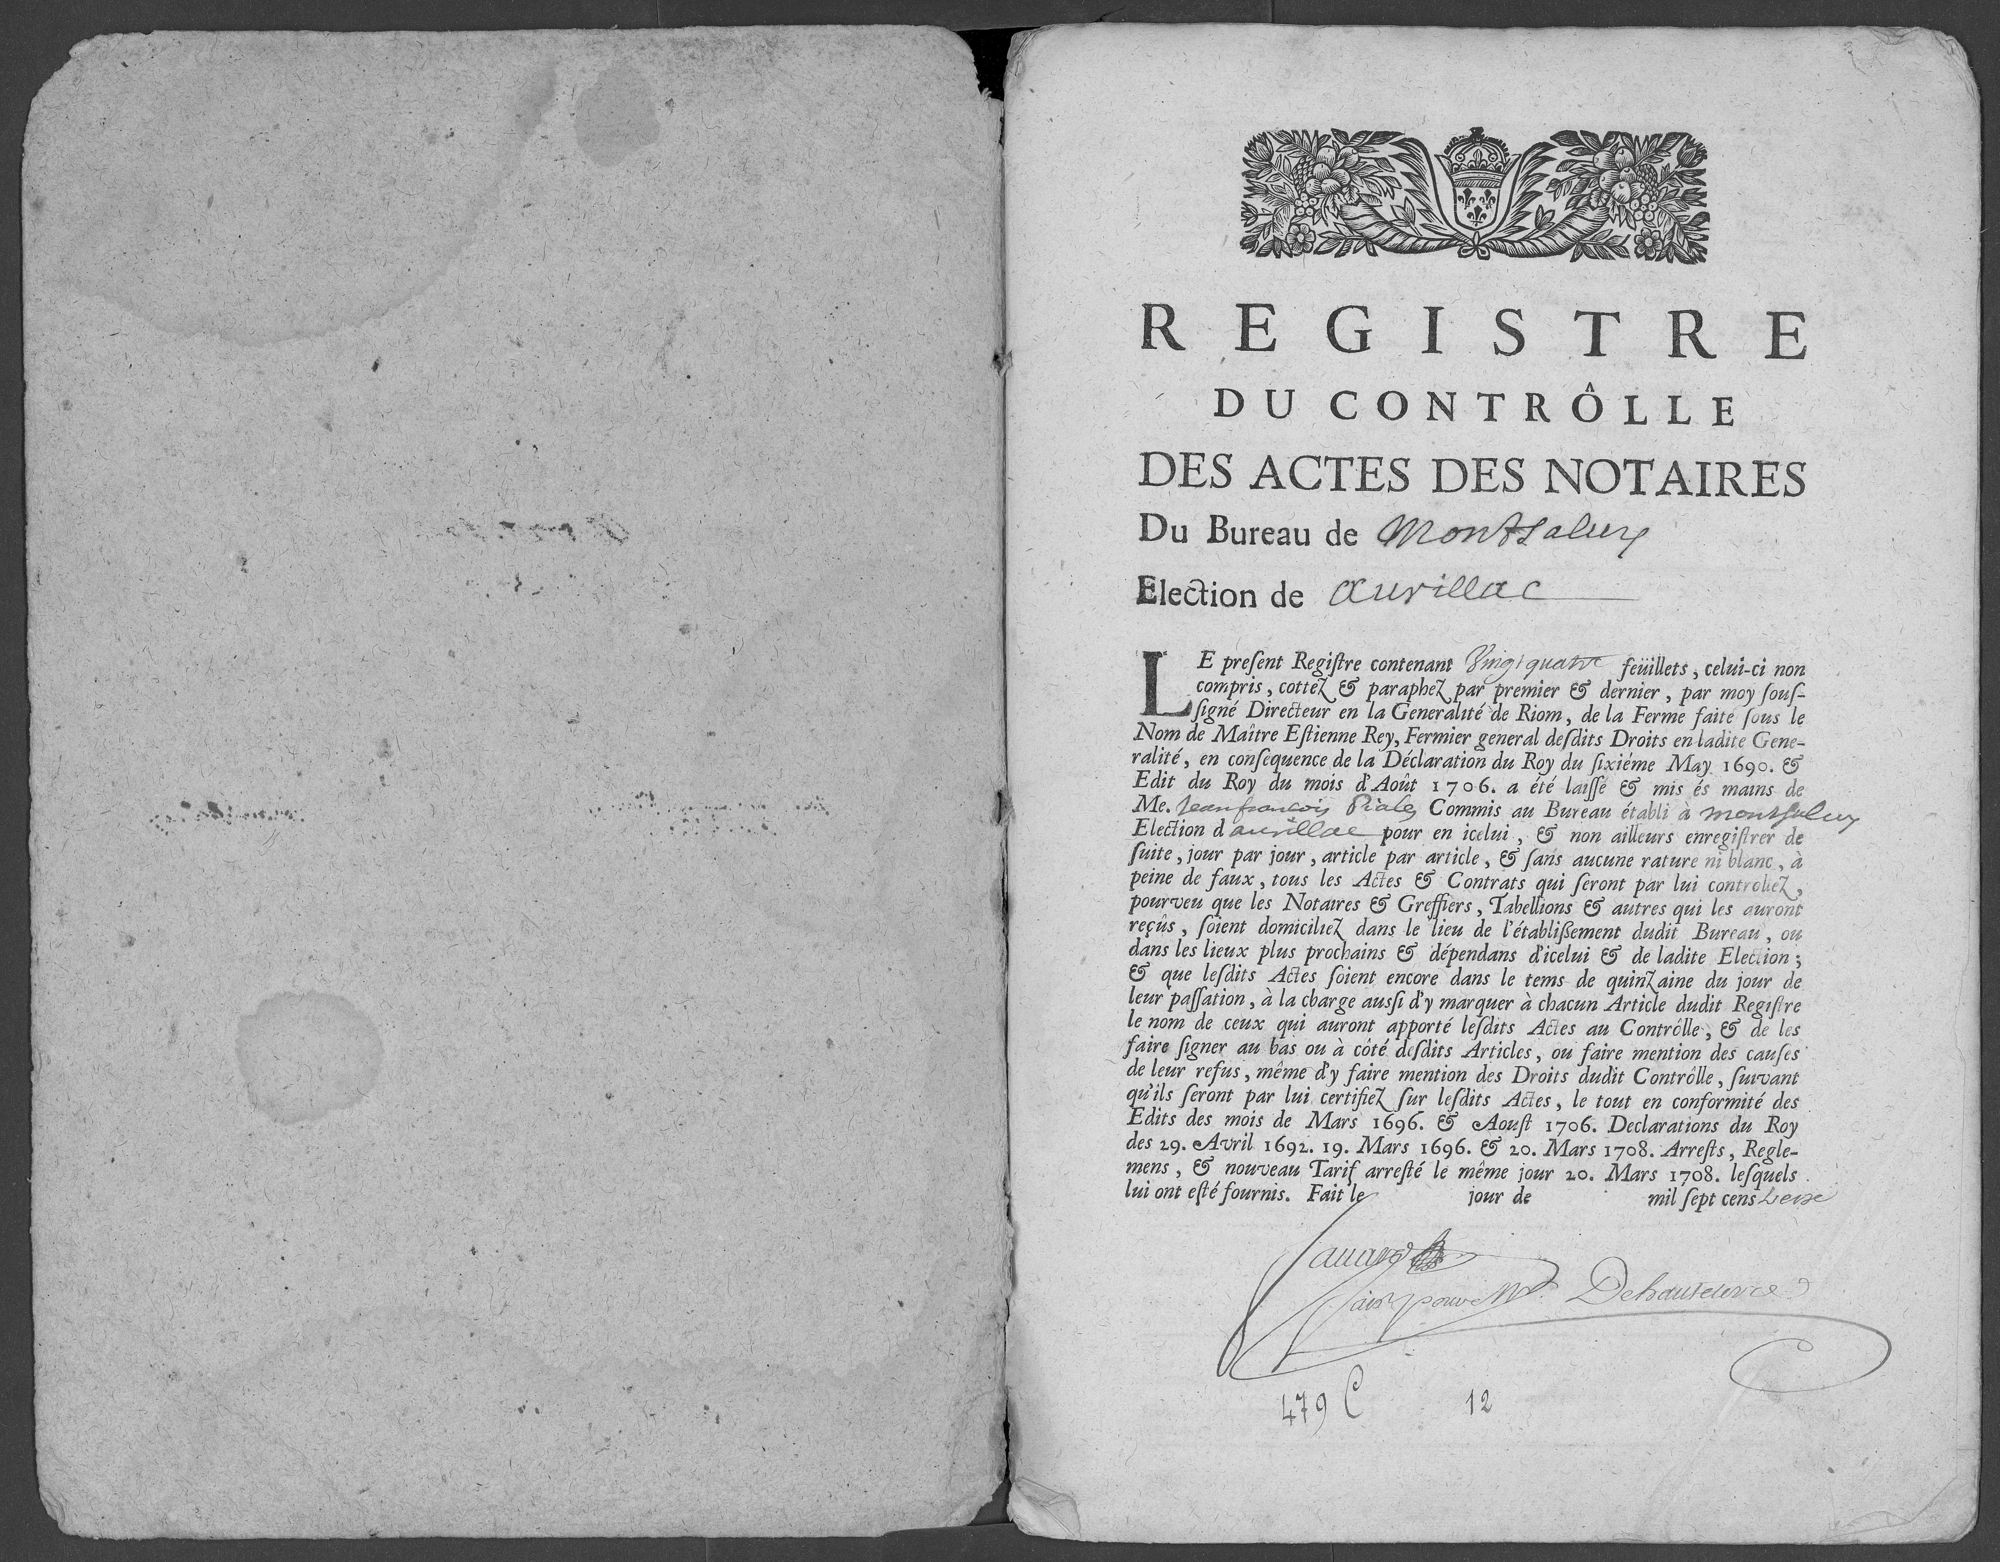 REGISTRE
DU CONTRÔLLE
DES ACTES DES NOTAIRES
Du Bureau de Montsaluy
Election de Aurillac
LE preſent Regiſtre contenant Vingt quatre feüillets, celui-ci non
compris, cottez & paraphez par premier & dernier, par moy ſouſ-
ſigné Directeur en la Generalité de Riom, de la Ferme faite ſous le
Nom de Maître Eſtienne Rey, Fermier general deſdits Droits en ladite Gene-
ralité, en conſequence de la Déclaration du Roy du ſixiéme May 1690. &
Edit du Roy du mois d'Août 1706. a été laiſſé & mis és mains de
Me. Jean francois Piales Commis au Bureau établi à montsaluy
Election d aurillac pour en icelui, & non ailleurs enregiſtrer de
ſuite, jour par jour, article par article, & ſans aucune rature ni blanc, à
peine de faux, tous les Actes & Contrats qui ſeront par lui controllez,
pourveu que les Notaires & Greffiers, Tabellions & autres qui les auront
reçûs, ſoient domiciliez dans le lieu de l'établiſſement dudit Bureau, ou
dans les lieux plus prochains & dépendans d'icelui & de ladite Election;
& que leſdits Actes ſoient encore dans le tems de quinzaine du jour de
leur paſſation, à la charge auſſi d'y marquer à chacun Article dudit Regiſtre
le nom de ceux qui auront apporté leſdits Actes au Contrôlle, & de les
faire ſigner au bas ou à côté deſdits Articles, ou faire mention des cauſes
de leur refus, même d'y faire mention des Droits dudit Contrôlle, ſuivant
qu'ils ſeront par lui certifiez ſur leſdits Actes, le tout en conformité des
Edits des mois de Mars 1696. & Aouſt 1706. Declarations du Roy
des 29. Avril 1692. 19. Mars 1696. & 20. Mars 1708. Arreſts, Regle-
mens, & nouveau Tarif arreſté le même jour 20. Mars 1708. leſquels
lui ont eſté fournis. Fait le jour de mil ſept cens
pour Mr. Dehauteterre
479 C 12